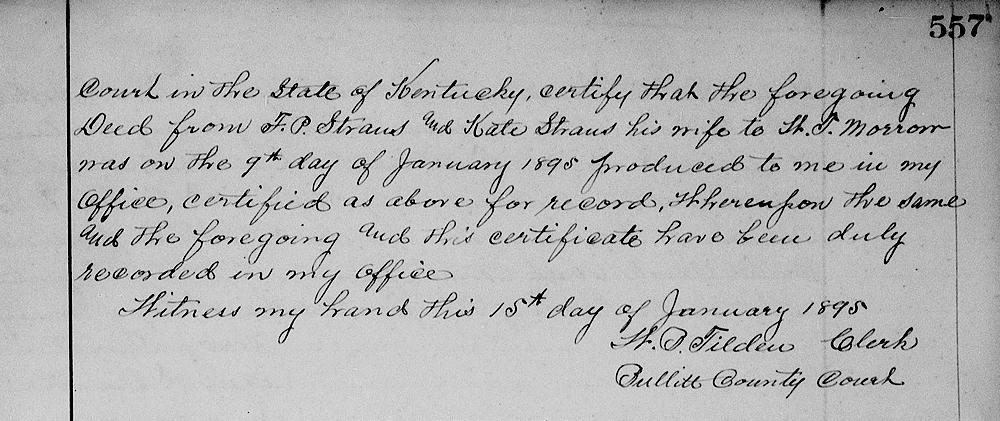 557
Court in the State of Kentucky, certify that the foregoing
Deed from F. P. Straus and Kate Straus his wife to W. T. Morrow
was on the 9th day of January 1895 produced to me in my
Office, certified as above for record, Whereupon the same
and the foregoing and this certificate have been duly
recorded in my office
Witness my hand this 15th day of January 1895
W. P. Tilden Clerk
Bullitt County Court